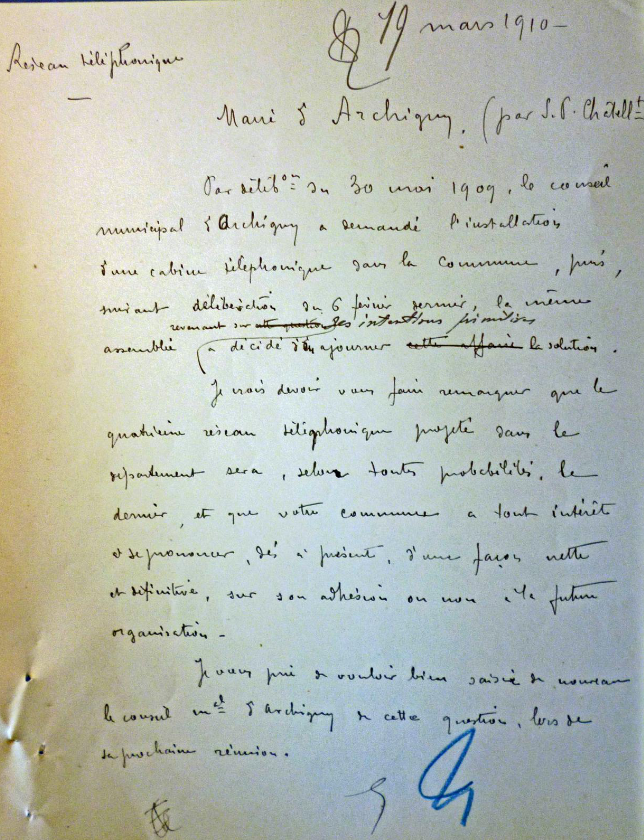 19 mars 1910 -
Réseau téléphonique
Maire d'Archigny, (par S.P. Châtell^t
Par délib^on du 30 mai 1909, le conseil
municipal d'Archigny a demandé l'installation
d'une cabine téléphonique dans la commune, puis,
suivant délibération du 6 février dernier, la même
revenant sur cette question ses intentions primitives
assemblée a décidé d'en ajourner cette affaire la solution.
Je crois devoir vous faire remarquer que le
quatrième réseau téléphonique projeté dans le
département sera, selon toutes probabilités, le
dernier, et que votre commune a tout intérêt
à se prononcer, dès à présent, d'une façon nette
et définitive, sur son adhésion ou non à la future
organisation -
Je vous prie de vouloir bien saisir de nouveau
le conseil m^al d'Archigny de cette question, lors de
sa prochaine réunion.